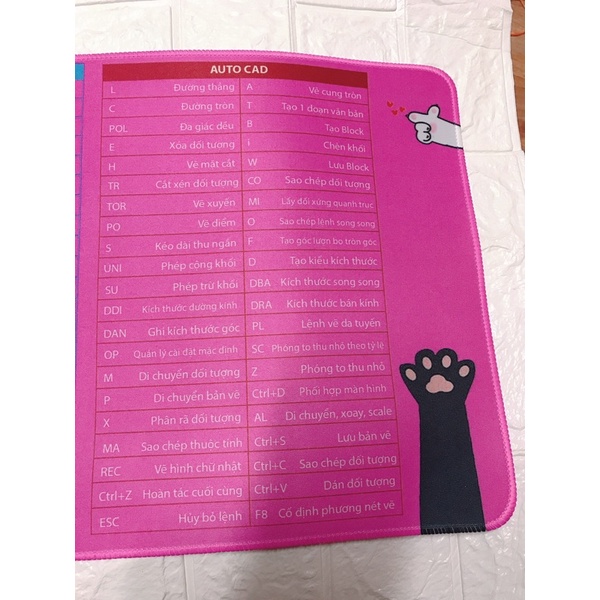 AUTO CAD
L Đường thẳng A Vẽ cung tròn
C Đường tròn T Tạo 1 đoạn văn bản
POL Đa giác đều B Tạo Block
E Xóa đối tượng i Chèn khối
H Vẽ mặt cắt W Lưu Block
TR Cắt xén đối tượng CO Sao chép đối tượng
TOR Vẽ xuyến MI Lấy đối xứng quanh trục
PO Vẽ điểm O Sao chép lệnh song song
S Kéo dài thu ngắn F Tạo góc lượn bo tròn góc
UNI Phép cộng khối D Tạo kiểu kích thước
SU Phép trừ khối DBA Kích thước song song
DDI Kích thước đường kính DRA Kích thước bán kính
DAN Ghi kích thước góc PL Lệnh vẽ đa tuyến
OP Quản lý cài đặt mặc đinh SC Phóng to thu nhỏ theo tỷ lệ
M Di chuyển đối tượng Z Phóng to thu nhỏ
P Di chuyển bản vẽ Ctrl+D Phối hợp màn hình
X Phân rã đối tượng AL Di chuyển, xoay, scale
MA Sao chép thuộc tính Ctrl+S Lưu bản vẽ
REC Vẽ hình chữ nhật Ctrl+C Sao chép đối tượng
Ctrl+Z Hoàn tác cuối cùng Ctrl+V Dán đối tượng
ESC Hủy bỏ lệnh F8 Cố định phương nét vẽ